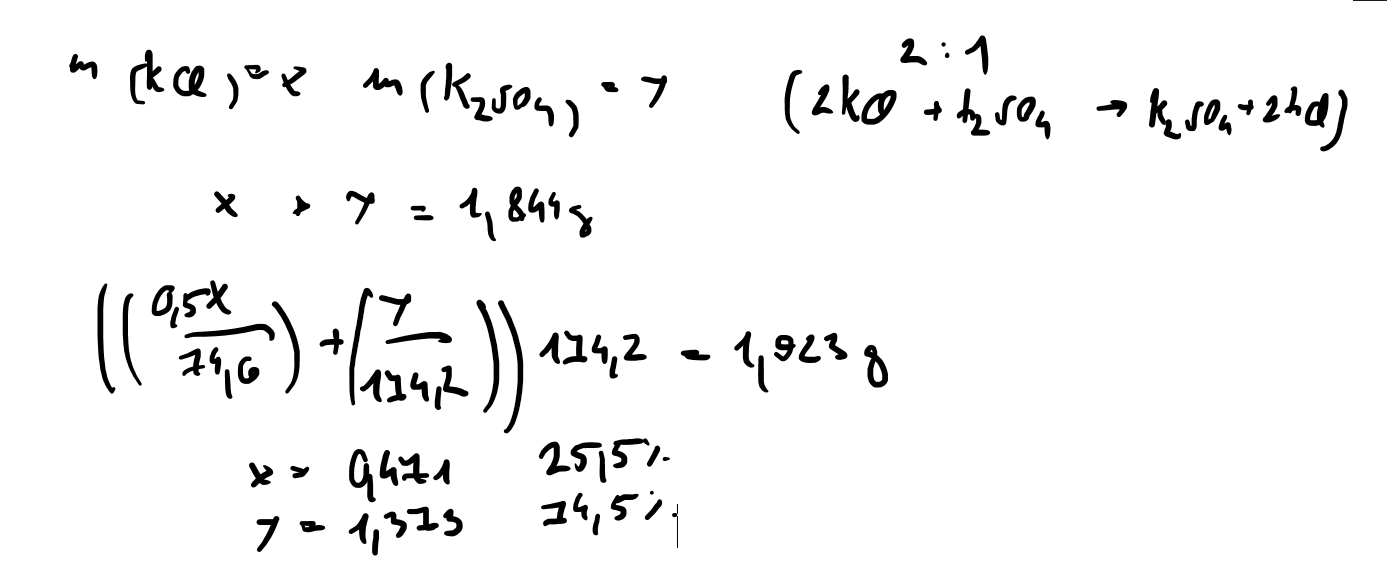 m (kCl) = x m (K₂SO₄) = y 2 : 1
(2kCl + h₂SO₄ → k₂SO₄ + 2hCl)
x + y = 1,844g
((0,5x / 74,6) + (y / 174,2)) 174,2 = 1,923 g
x = 0,471 25,5%
y = 1,373 74,5%